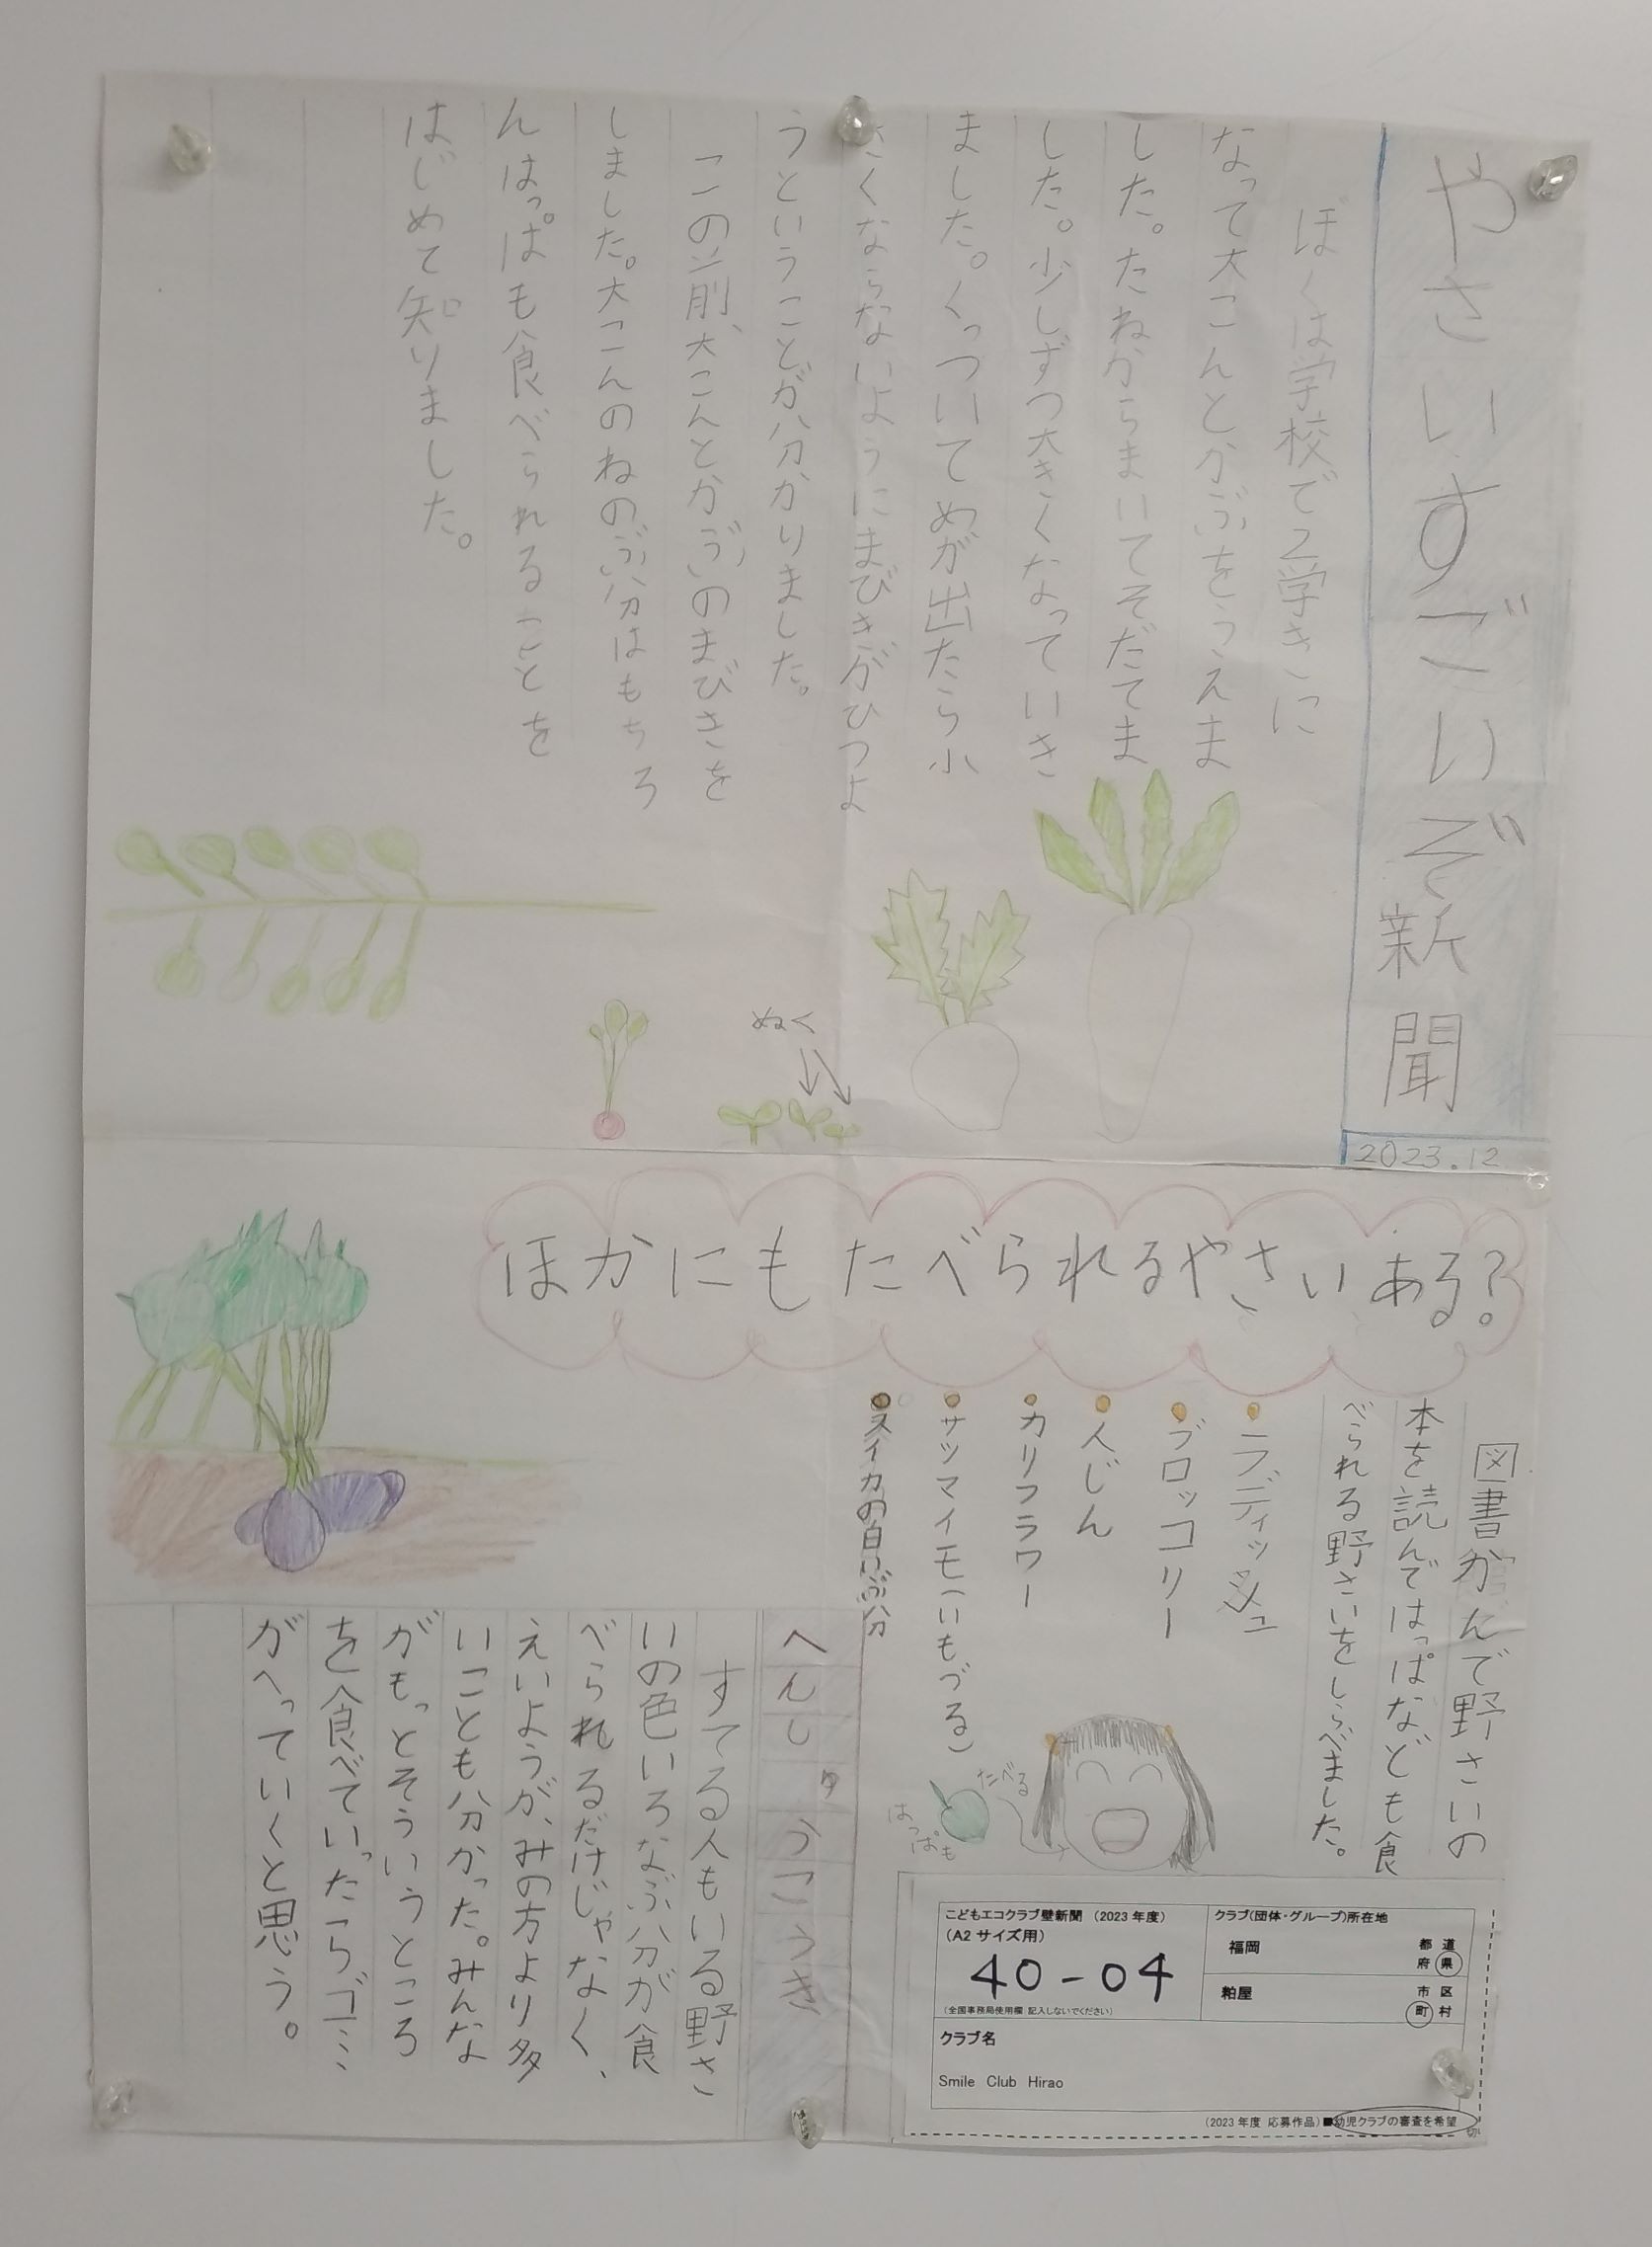 やさいすごいぞ新聞
2023.12
ぼくは学校で2学きに
なって大こんとかぶをうえま
した。たねからまいてそだてま
した。少しずつ大きくなっていき
ました。くっついてめが出たら小
さくならないようにまびきがひつよ
うということが分かりました。
この前、大こんとかぶのまびきを
しました。大こんのねのぶ分はもちろ
んはっぱも食べられることを
はじめて知りました。
ぬく
ほかにもたべられるやさいある?
図書かんで野さいの
本を読んではっぱなども食
べられる野さいをしらべました。
ラディッシュ
ブロッコリー
人じん
カリフラワー
サツマイモ(いもづる)
スイカの白いぶ分
たべる
はっぱも
へんしゅうこうき
すてる人もいる野さ
いの色いろなぶ分が食
べられるだけじゃなく、
えいようが、みの方より多
いことも分かった。みんな
がもっとそういうところ
を食べていったらゴミ
がへっていくと思う。
こどもエコクラブ壁新聞 (2023年度)
(A2サイズ用)
40-04
(全国事務局使用欄 記入しないでください)
クラブ(団体・グループ)所在地
福岡 都道府県
粕屋 市区町村
クラブ名
Smile Club Hirao
(2023年度 応募作品)■幼児クラブの審査を希望